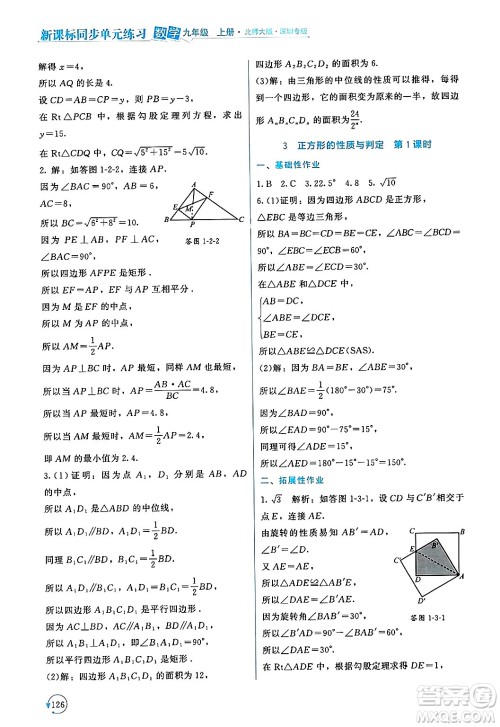 新课标同步单元练习 数学 九年级 上册·北师大版·深圳专版
解得 x=4,
所以 AQ 的长是 4.
设 CP=PN=y,所以 PB=24-y,
在 Rt△PCB 中,根据勾股定理列方程,求出
y=15.
在 Rt△PCQ 中,PQ=√(6²+15²)=√261.
2. 解:如答图 1-2-2,
因为 ∠BAC=90°,AB=6,
AC=8,
所以 BC=√(6²+8²)=10.
因为 PE⊥AB,PF⊥AC,
∠BAC=90°,
答图 1-2-2
所以四边形 AFPE 是矩形.
所以 EF 与 AP 互相平分.
因为 M 是 EF 的中点,
所以 M 为 AP 的中点.
所以 AM=1/2 AP.
因为当 AP⊥BC 时,AP 最短,同样 AM 也最短,
所以当 AP⊥BC 时,AP=AB·AC/BC=4.8,
所以当 AP 最短时,AP=4.8,
所以当 AM 最短时,AM=1/2 AP=2.4.
即 AM 的最小值为 2.4.
3. (1)证明:因为点 A₁,D₁ 分别是 AB,AD 的中点,
所以 A₁D₁ 是△ABD 的中位线.
所以 A₁D₁∥BD,A₁D₁=1/2 BD.
同理 B₁C₁∥BD,B₁C₁=1/2 BD.
所以 A₁D₁∥B₁C₁,A₁D₁=B₁C₁=1/2 BD.
所以四边形 A₁B₁C₁D₁ 是平行四边形.
因为 AC⊥BD,AC∥A₁B₁,BD∥A₁D₁,
所以 A₁B₁⊥A₁D₁.
即∠B₁A₁D₁=90°.
所以四边形 A₁B₁C₁D₁ 是矩形.
(2)解:因为四边形 ABCD 中,AC=6,BD=8,
四边形 ABCD 的面积为 24.
(3)解:由三角形的中位线的性质可以推知,每得到一次四边形,它的面积变为原来的一半,故四边形 AₙBₙCₙDₙ 的面积为 24/2ⁿ.
3 正方形的性质与判定 第 1 课时
一、基础性作业
1. B 2. C 3. 22.5° 4. 8 5. √10
6. (1)证明:因为四边形 ABCD 是正方形,
△CBE 是等边三角形,
所以 BA=BC=DC=BE=CE,
∠ABC=∠BCD=90°,
∠EBC=∠ECB=60°.
所以∠ABE=∠ECD=30°.
在△ABE 和△DCE 中,
AB=DC,
∠ABE=∠DCE,
BE=CE,
所以△ABE≌△DCE(SAS).
(2)解:因为 BA=BE,∠ABE=30°,
所以∠BAE=1/2(180°-30°)=75°.
因为∠BAD=90°,
所以∠EAD=90°-75°=15°.
同理可得∠ADE=15°.
所以∠AED=180°-15°-15°=150°.
二、拓展性作业
1. √3 解析:如答图 1-3-1,设 CD 与 C′B′交于
点 E,连接 AE.
由旋转的性质得∠AB′E=∠D=90°,
AB′=AD.
又因为 AE=AE,
所以△AB′E≌△ADE(HL).
所以∠B′AE=∠DAE.
因为∠BAB′=30°,∠BAD=90°,
旋转角∠BAB′=30°,
所以∠B′AD=90°-30°=60°.
答图 1-3-1
所以∠DAE=1/2∠B′AD=30°.
126